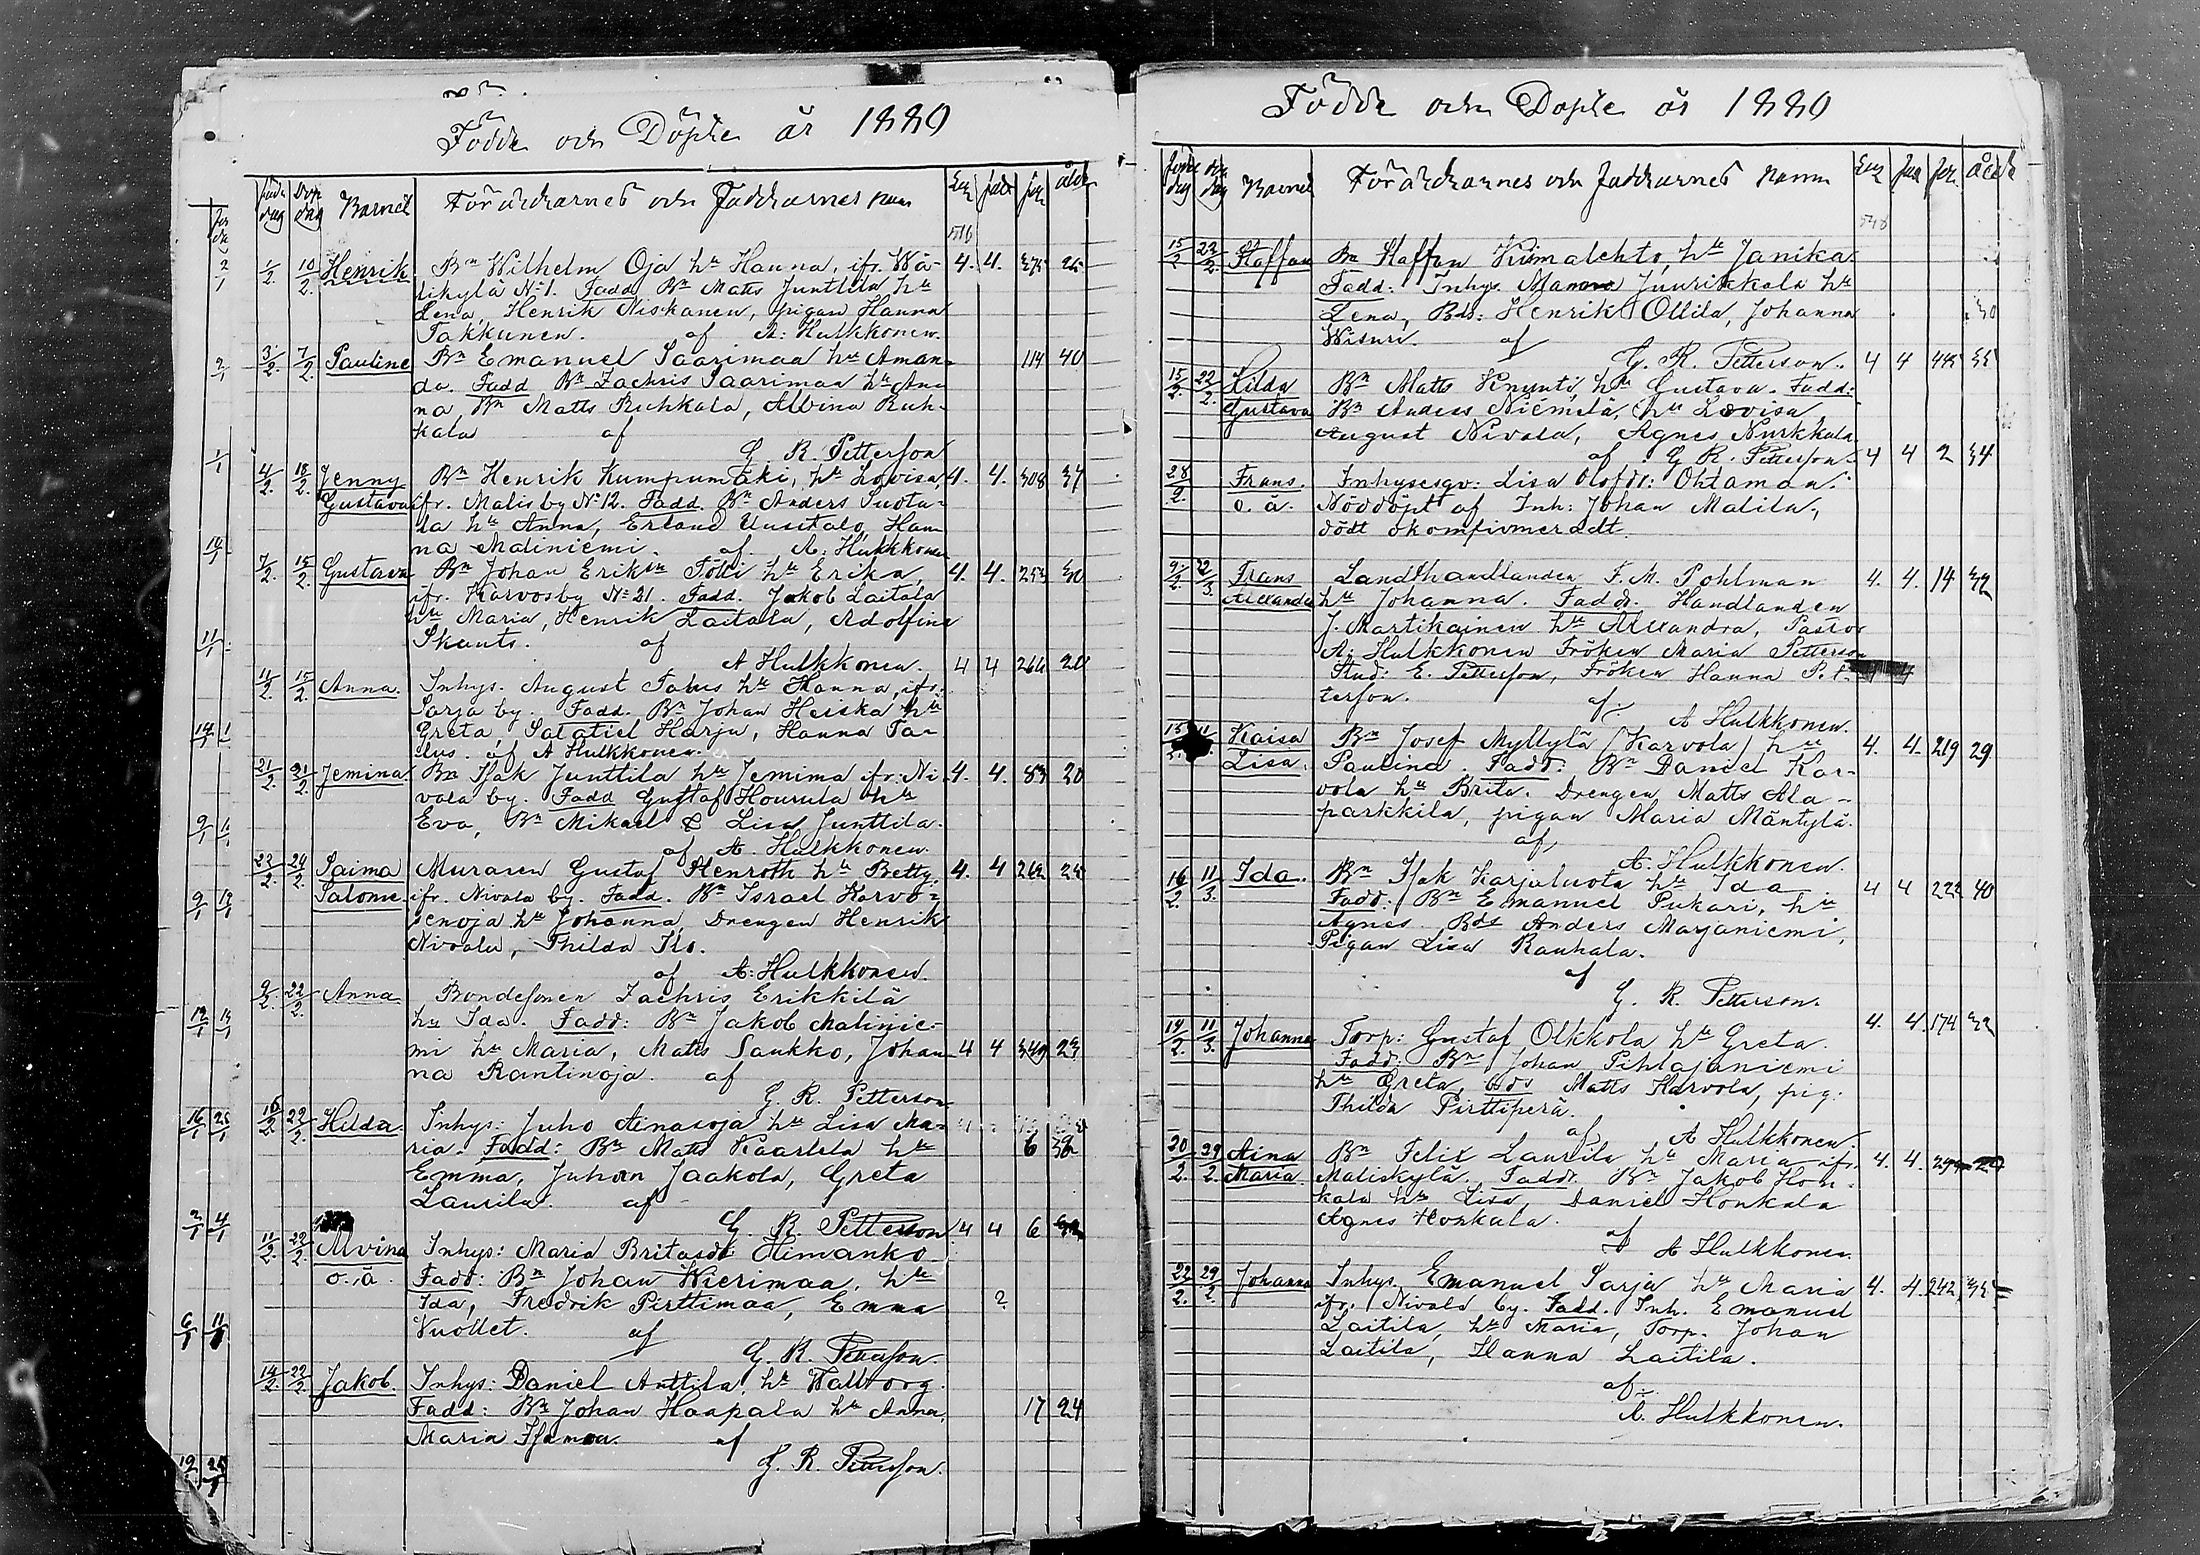 Födde och Döpte år 1880
föde dag döp dag Barnet Föräldrarnes och Faddrarnes namn
1/2 10/2 Henrik Bn Wilhelm Oja hu Hanna, ifr. Wä- 4. 4. 375 25
likylä No 1. Fadd Bn Matts Junttila hu
Lena, Henrik Niskanen, pigan Hanna
Takkunen. af A: Hulkkonen.
3/2 7/2 Pauline Bn Emanuel Saarimaa hu Aman- 114 40
da. Fadd Bn Zachris Saarimaa hu An-
na, Bn Matts Ruhkala, Albina Ruh-
kala af
G. R. Petterson
4/2 18/2 Jenny Bn Henrik Kumpumäki, hu Lovisa 4. 4. 308 37
Gustava ifr. Malisby No 12. Fadd. Bn Anders Suota-
la hu Anna, Erland Uusitalo, Han-
na Maliniemi. af. A: Hulkkonen
7/2 15/2 Gustava Bn Johan Erikss Tölli hu Erika, 4. 4. 253 30
ifr. Karvosby No 21. Fadd. Jakob Laitala
hu Maria, Henrik Laitala, Adolfina
Skants. af
A Hulkkonen. 4 4 266 20
11/2 15/2 Anna. Inhys. August Talus hu Hanna, ifr.
Sarja by. Fadd. Bn Johan Heiska hu
Greta, Salatiel Harju, Hanna Ta-
lus. af A Hulkkonen.
21/2 21/2 Jemina Bn Isak Junttila hu Jemima ifr. Ni- 4. 4. 83 20
vala by. Fadd Gustaf Hourula hu
Eva, Bn Mikael & Lisa Junttila.
af A. Hulkkonen.
23/2 24/2 Saima Muraren Gustaf Stenroth hu Betty, 4. 4 262 25
Salome. ifr. Nivala by. Fadd. Bn Israel Karvo-
senoja hu Johanna, Drengen Henrik
Nivala, Thilda Iso.
af A: Hulkkonen.
9/2 22/2 Anna Bondesonen Zachris Erikkilä
hu Ida. Fadd: Bn Jakob Malinie-
mi hu Maria, Matts Saukko, Johan- 4 4 349 23
na Rantinoja. af
G. R. Petterson
16/2 22/2 Hilda. Inhys: Juho Ainasoja hu Lisa Ma-
ria. Fadd: Bn Matts Kaarlela hu 6 32
Emma, Juhan Jaakola, Greta
Laurila. af
G. R. Petterson 4 4 6
11/2 22/2 Alvina Inhys: Maria Britasdr Himanko
o. ä. Fadd: Bn Johan Wierimaa, hu
Ida, Fredrik Pirttimaa, Emma 2
Vuollet. af
G. R. Petterson.
14/2 22/2 Jakob. Inhys: Daniel Anttila, hu Wallborg.
Fadd: Bn Johan Haapala hu Anna, 17 24
Maria Isamaa. af
G. R. Petterson.
Födde och Döpte år 1880
Barnet Föräldrarnes och Faddrarnes namn
15/2 22/2 Staffan Bn Staffan Kiimalehto, hu Janika.
Fadd: Inhys. Juurikkala hu
Lena, Bds: Henrik Ollila, Johanna 30
Wisuri. af
G. R. Petterson. 4 4 445 35
15/2 22/2 Hilda Bn Matts Knynti, hu Gustava. Fadd:
Gustava Bn Anders Niemelä, hu Lovisa
August Nivala, Agnes Nurkkala
af G R. Petterson. 4 4 2 34
28/2 Frans. Inhysesqv: Lisa Olofsdr: Ohtamaa.
o. ä. Nöddöpt af Inh: Johan Malila,
dödt okomfirmeradt.
22/3 Frans Landthandlanden F. M. Pohlman 4. 4. 14 32
Alexander hu Johanna. Fadd. Handlanden
J. Martikainen hu Alexandra, Pastor
A. Hulkkonen Fröken Maria Petterson
Stud: E. Petterson, Fröken Hanna Pet-
terson. af
A Hulkkonen.
15/2 Kaisa Bn Josef Myllylä (Karvola) hu 4. 4. 219 29.
Lisa. Paulina. Fadd: Bn Daniel Kar-
vola hu Brita. Drengen Matts Ala-
parkkila, pigan Maria Mäntylä.
af,
A: Hulkkonen.
16/2 11/3 Ida. Bn Isak Karjaluota hu Ida. 4 4 222 40
Fadd: Bn Emanuel Pukari, hu
Agnes. Bds Anders Marjaniemi,
Pigan Lisa Rauhala.
af
G. R. Petterson.
4. 4. 174 32
19/2 11/3 Johanna Torp: Gustaf Olkkola hu Greta.
Fadd: Bn Johan Pihlajaniemi
hu Greta, Bds Matts Karvola, pig:
Thilda Pirttiperä.
af A Hulkkonen.
20/2 29/2 Aina Bn Felix Laurila hu Maria ifr. 4. 4.
Maria Maliskylä. Fadd. Bn Jakob Hon-
kala hu Lisa, Daniel Honkala
Agnes Honkala.
af A Hulkkonen.
22/2 29/2 Johanna Inhys. Emanuel Sarja hu Maria 4. 4. 242 35
ifr. Nivala by. Fadd. Inh. Emanuel
Laitila, hu Maria, Torp. Johan
Laitila, Hanna Laitila.
af
A. Hulkkonen.